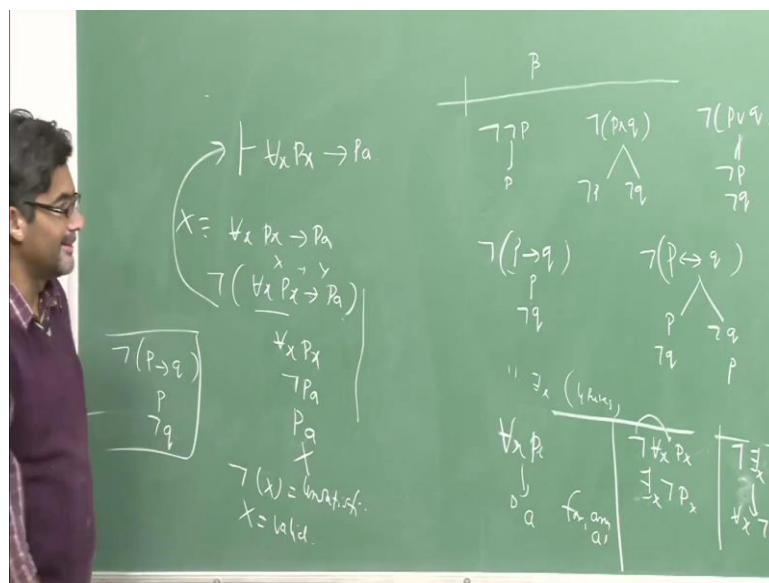 ⊢ ∀x Px → Pa
X ≡ ∀x Px → Pa
X → Y
¬(∀x Px → Pa)
∀x Px
¬Pa
Pa
X
¬(X) =
X = valid.
¬(P→q)
P
¬q
β
¬¬P
P
¬(P∧q)
¬P ¬q
¬(P∨q
¬P
¬q
¬(P→q)
P
¬q
¬(P↔q)
P ¬q
¬q P
∀x Px
a
for any
a,
¬∀x Px
∃x ¬Px
¬∃x
∀x ¬